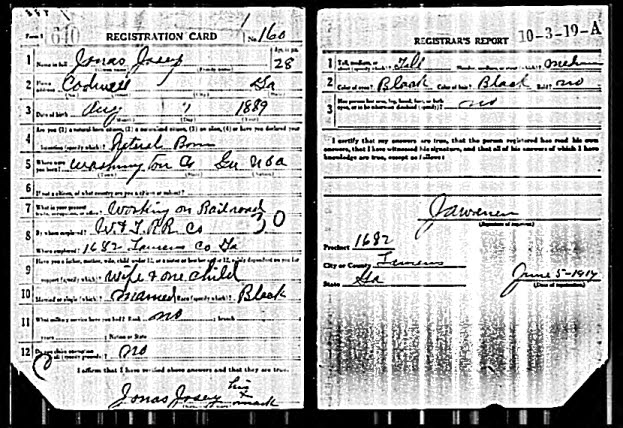 Form 1
REGISTRATION CARD
No. 160
1 Name in full Jonas Josey
Age, in yrs. 28
2 Home address Cadwell Ga
3 Date of birth Aug 1 1889
4 Are you (1) a natural-born citizen, (2) a naturalized citizen, (3) an alien, (4) or have you declared your intention (specify which)? Natural Born
5 Where were you born? Washington Co Ga USA
6 If not a citizen, of what country are you a citizen or subject?
7 What is your present trade, occupation, or office? Working on Railroad
8 By whom employed? W & T. R.R. Co
Where employed? 1682 Laurens Co Ga
9 Have you a father, mother, wife, child under 12, or a sister or brother under 12, solely dependent on you for support (specify which)? Wife & one child
10 Married or single (which)? Married Race (specify which)? Black
11 What military service have you had? Rank no branch
years Nation or State
12 Do you claim exemption from draft (specify grounds)? no
I affirm that I have verified above answers and that they are true.
Jonas Josey his x mark
REGISTRAR'S REPORT
10-3-19-A
1 Tall, medium, or short (specify which)? Tall Slender, medium, or stout (which)? medium
2 Color of eyes? Black Color of hair? Black Bald? no
3 Has person lost arm, leg, hand, foot, or both eyes, or is he otherwise disabled (specify)? no
I certify that my answers are true, that the person registered has read his own answers, that I have witnessed his signature, and that all of his answers of which I have knowledge are true, except as follows:
(Signature of registrar)
Precinct 1682
City or County Laurens
State Ga
June 5-1917
(Date of registration)